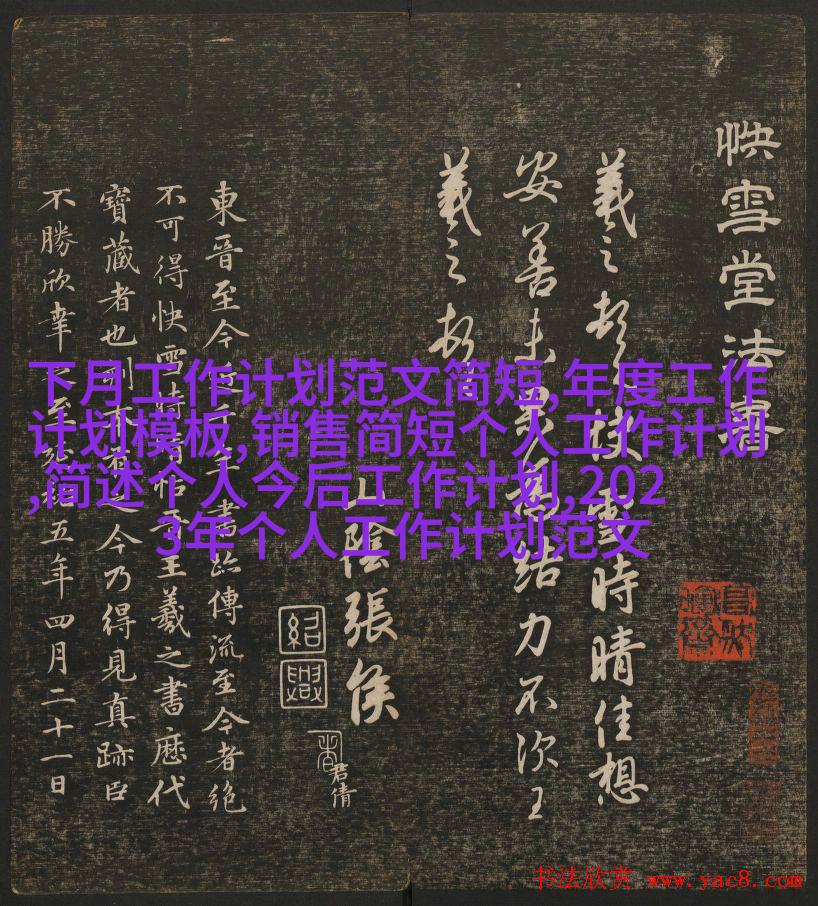 下月工作计划范文简短,年度工作
计划模板,销售简短个人工作计划
,简述个人今后工作计划,202
3年个人工作计划范文
快雪堂法書
羲之頓首快雪時晴佳想
安善未果為結力不次王
羲之頓
山陰張侯
紹興
君倩
東晉至今近千年書跡傳流至今者絕
不可得快雪時晴帖晉王羲之書歷代
寶藏者也刻本有之今乃得見真跡臣
不勝欣幸之至延祐五年四月二十一日
书法欣赏 www.yac8.com